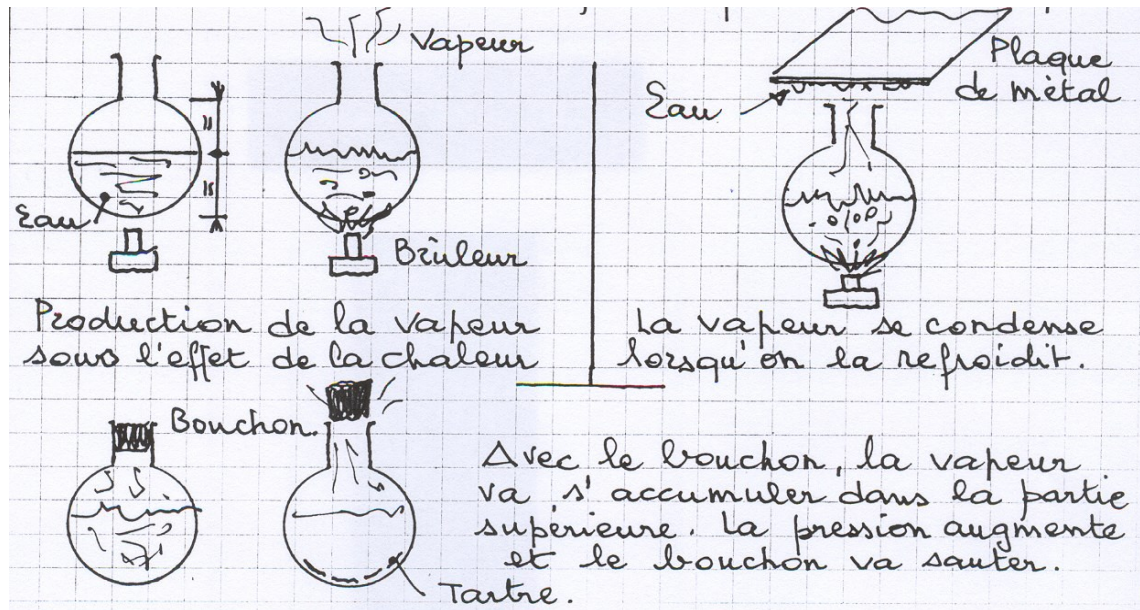 Vapeur
Eau
Brûleur
Production de la vapeur
sous l'effet de la chaleur
Plaque
de métal
Eau
La vapeur se condense
lorsqu'on la refroidit.
Bouchon.
Tartre.
Avec le bouchon, la vapeur
va s'accumuler dans la partie
supérieure. La pression augmente
et le bouchon va sauter.